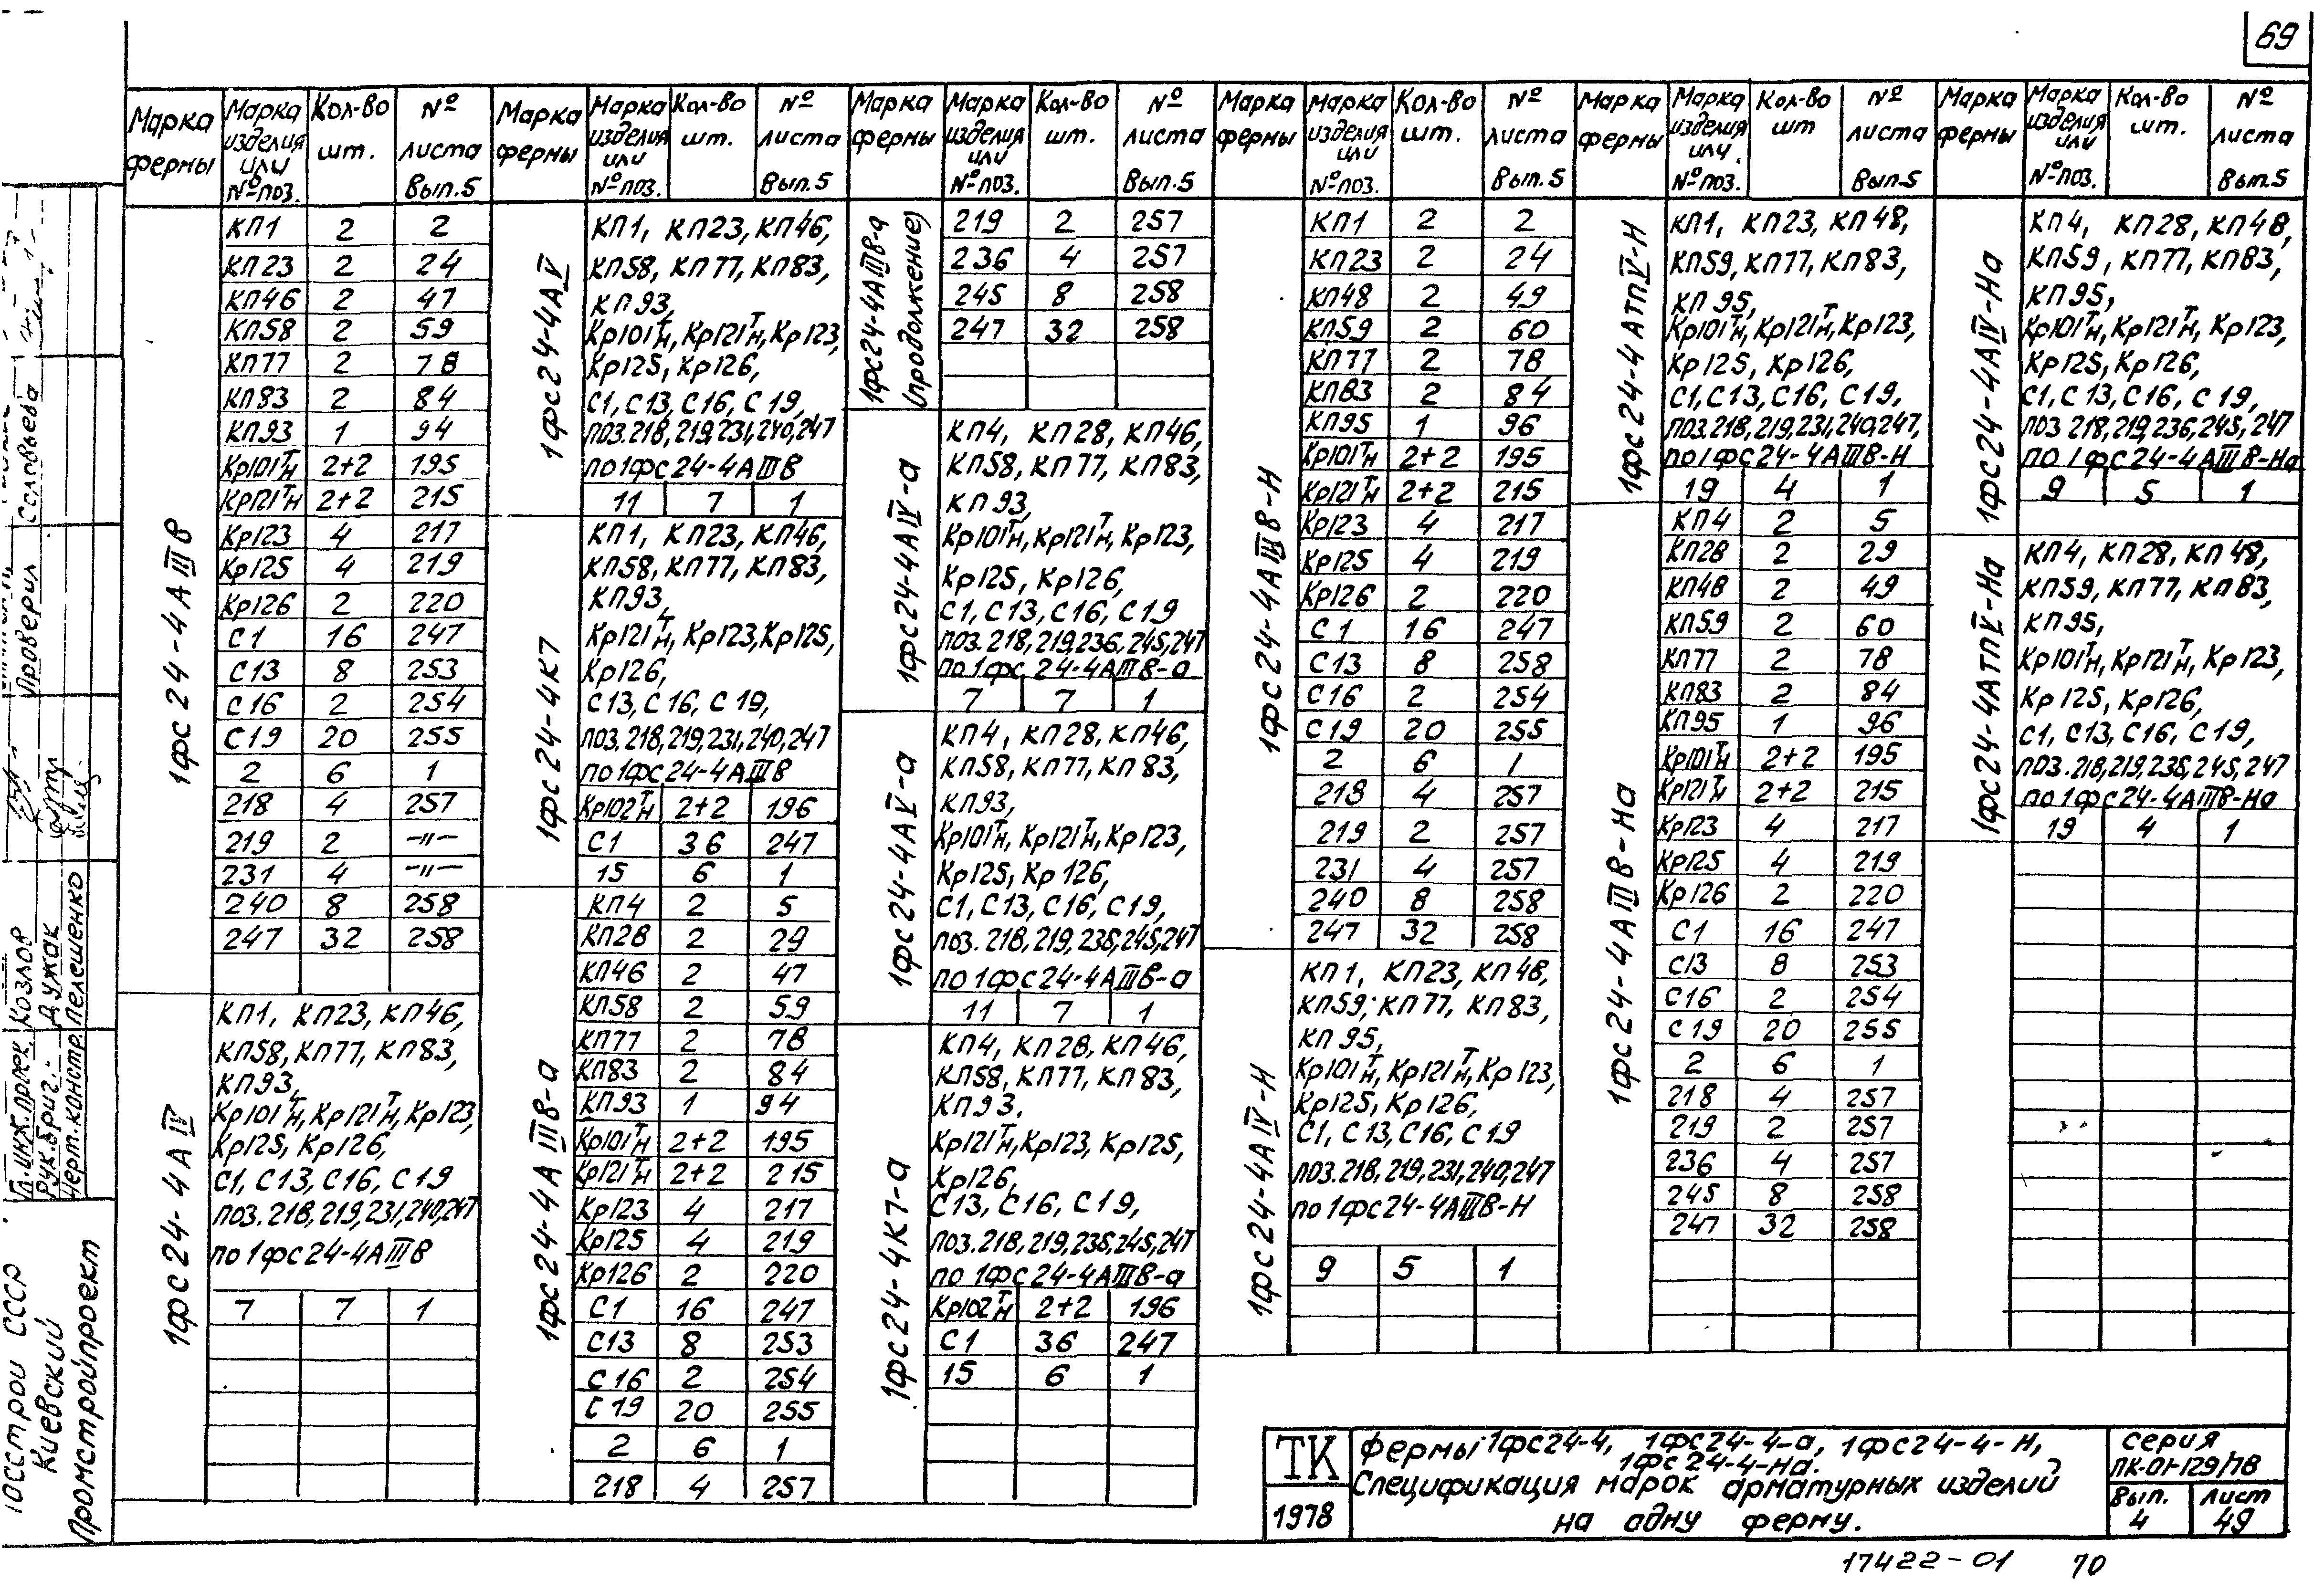 69
Марка фермы | Марка изделия или № поз. | Кол-во шт. | № листа Вып.5
1фс24-4АIIIв
КП1 2 2
КП23 2 24
КП46 2 47
КП58 2 59
КП77 2 78
КП83 2 84
КП93 1 94
Кр101Т/Н 2+2 195
Кр121Т/Н 2+2 215
Кр123 4 217
Кр125 4 219
Кр126 2 220
С1 16 247
С13 8 253
С16 2 254
С19 20 255
2 6 1
218 4 257
219 2 -"-
231 4 -"-
240 8 258
247 32 258
1фс24-4АIV
КП1, КП23, КП46,
КП58, КП77, КП83,
КП93,
Кр101Т/Н, Кр121Т/Н, Кр123,
Кр125, Кр126,
С1, С13, С16, С19
поз.218,219,231,240,247
по 1фс24-4АIIIв
7 7 1
Марка фермы | Марка изделия или № поз. | Кол-во шт. | № листа Вып.5
1фс24-4АV
КП1, КП23, КП46,
КП58, КП77, КП83,
КП93,
Кр101Т/Н, Кр121Т/Н, Кр123,
Кр125, Кр126,
С1, С13, С16, С19,
поз.218,219,231,240,247
по 1фс24-4АIIIв
11 7 1
1фс24-4К7
КП1, КП23, КП46,
КП58, КП77, КП83,
КП93,
Кр121Т/Н, Кр123, Кр125,
Кр126,
С13, С16, С19,
поз.218,219,231,240,247
по 1фс24-4АIIIв
Кр102Т/Н 2+2 196
С1 36 247
15 6 1
1фс24-4АIIIв-а
КП4 2 5
КП28 2 29
КП46 2 47
КП58 2 59
КП77 2 78
КП83 2 84
КП93 1 94
Кр101Т/Н 2+2 195
Кр121Т/Н 2+2 215
Кр123 4 217
Кр125 4 219
Кр126 2 220
С1 16 247
С13 8 253
С16 2 254
С19 20 255
2 6 1
218 4 257
Марка фермы | Марка изделия или № поз. | Кол-во шт. | № листа Вып.5
1фс24-4АIIIв-а (продолжение)
219 2 257
236 4 257
245 8 258
247 32 258
1фс24-4АIV-а
КП4, КП28, КП46,
КП58, КП77, КП83,
КП93,
Кр101Т/Н, Кр121Т/Н, Кр123,
Кр125, Кр126,
С1, С13, С16, С19
поз.218,219,236,245,247
по 1фс24-4АIIIв-а
7 7 1
1фс24-4АV-а
КП4, КП28, КП46,
КП58, КП77, КП83,
КП93,
Кр101Т/Н, Кр121Т/Н, Кр123,
Кр125, Кр126,
С1, С13, С16, С19,
поз.218,219,236,245,247
по 1фс24-4АIIIв-а
11 7 1
1фс24-4К7-а
КП4, КП28, КП46,
КП58, КП77, КП83,
КП93,
Кр121Т/Н, Кр123, Кр125,
Кр126,
С13, С16, С19,
поз.218,219,236,245,247
по 1фс24-4АIIIв-а
Кр102Т/Н 2+2 196
С1 36 247
15 6 1
Марка фермы | Марка изделия или № поз. | Кол-во шт. | № листа Вып.5
1фс24-4АIIIв-Н
КП1 2 2
КП23 2 24
КП48 2 49
КП59 2 60
КП77 2 78
КП83 2 84
КП95 1 96
Кр101Т/Н 2+2 195
Кр121Т/Н 2+2 215
Кр123 4 217
Кр125 4 219
Кр126 2 220
С1 16 247
С13 8 258
С16 2 254
С19 20 255
2 6 1
218 4 257
219 2 257
231 4 257
240 8 258
247 32 258
1фс24-4АIV-Н
КП1, КП23, КП48,
КП59, КП77, КП83,
КП95,
Кр101Т/Н, Кр121Т/Н, Кр123,
Кр125, Кр126,
С1, С13, С16, С19
поз.218,219,231,240,247
по 1фс24-4АIIIв-Н
9 5 1
Марка фермы | Марка изделия или № поз. | Кол-во шт | № листа Вып.5
1фс24-4АтпV-Н
КП1, КП23, КП48,
КП59, КП77, КП83,
КП95,
Кр101Т/Н, Кр121Т/Н, Кр123,
Кр125, Кр126,
С1, С13, С16, С19,
поз.218,219,231,240,247,
по 1фс24-4АIIIв-Н
19 4 1
1фс24-4АIIIв-На
КП4 2 5
КП28 2 29
КП48 2 49
КП59 2 60
КП77 2 78
КП83 2 84
КП95 1 96
Кр101Т/Н 2+2 195
Кр121Т/Н 2+2 215
Кр123 4 217
Кр125 4 219
Кр126 2 220
С1 16 247
С13 8 253
С16 2 254
С19 20 255
2 6 1
218 4 257
219 2 257
236 4 257
245 8 258
247 32 258
Марка фермы | Марка изделия или № поз. | Кол-во шт. | № листа Вып.5
1фс24-4АIV-На
КП4, КП28, КП48,
КП59, КП77, КП83,
КП95,
Кр101Т/Н, Кр121Т/Н, Кр123,
Кр125, Кр126,
С1, С13, С16, С19,
поз 218,219,236,245,247
по 1фс24-4АIIIв-На
9 5 1
1фс24-4АтпV-На
КП4, КП28, КП48,
КП59, КП77, КП83,
КП95,
Кр101Т/Н, Кр121Т/Н, Кр123,
Кр125, Кр126,
С1, С13, С16, С19,
поз.218,219,236,245,247
по 1фс24-4АIIIв-На
19 4 1
Проверил Соловьева
Гл.инж.проек. Козлов
Рук.бриг. Дужак
Черт.констр. Пелешенко
Госстрой СССР
Киевский
Промстройпроект
ТК
1978
Фермы 1фс24-4, 1фс24-4-а, 1фс24-4-Н,
1фс24-4-На.
Спецификация марок арматурных изделий
на одну ферму.
серия
ПК-01-129/78
Вып. 4
Лист 49
17422-01 70